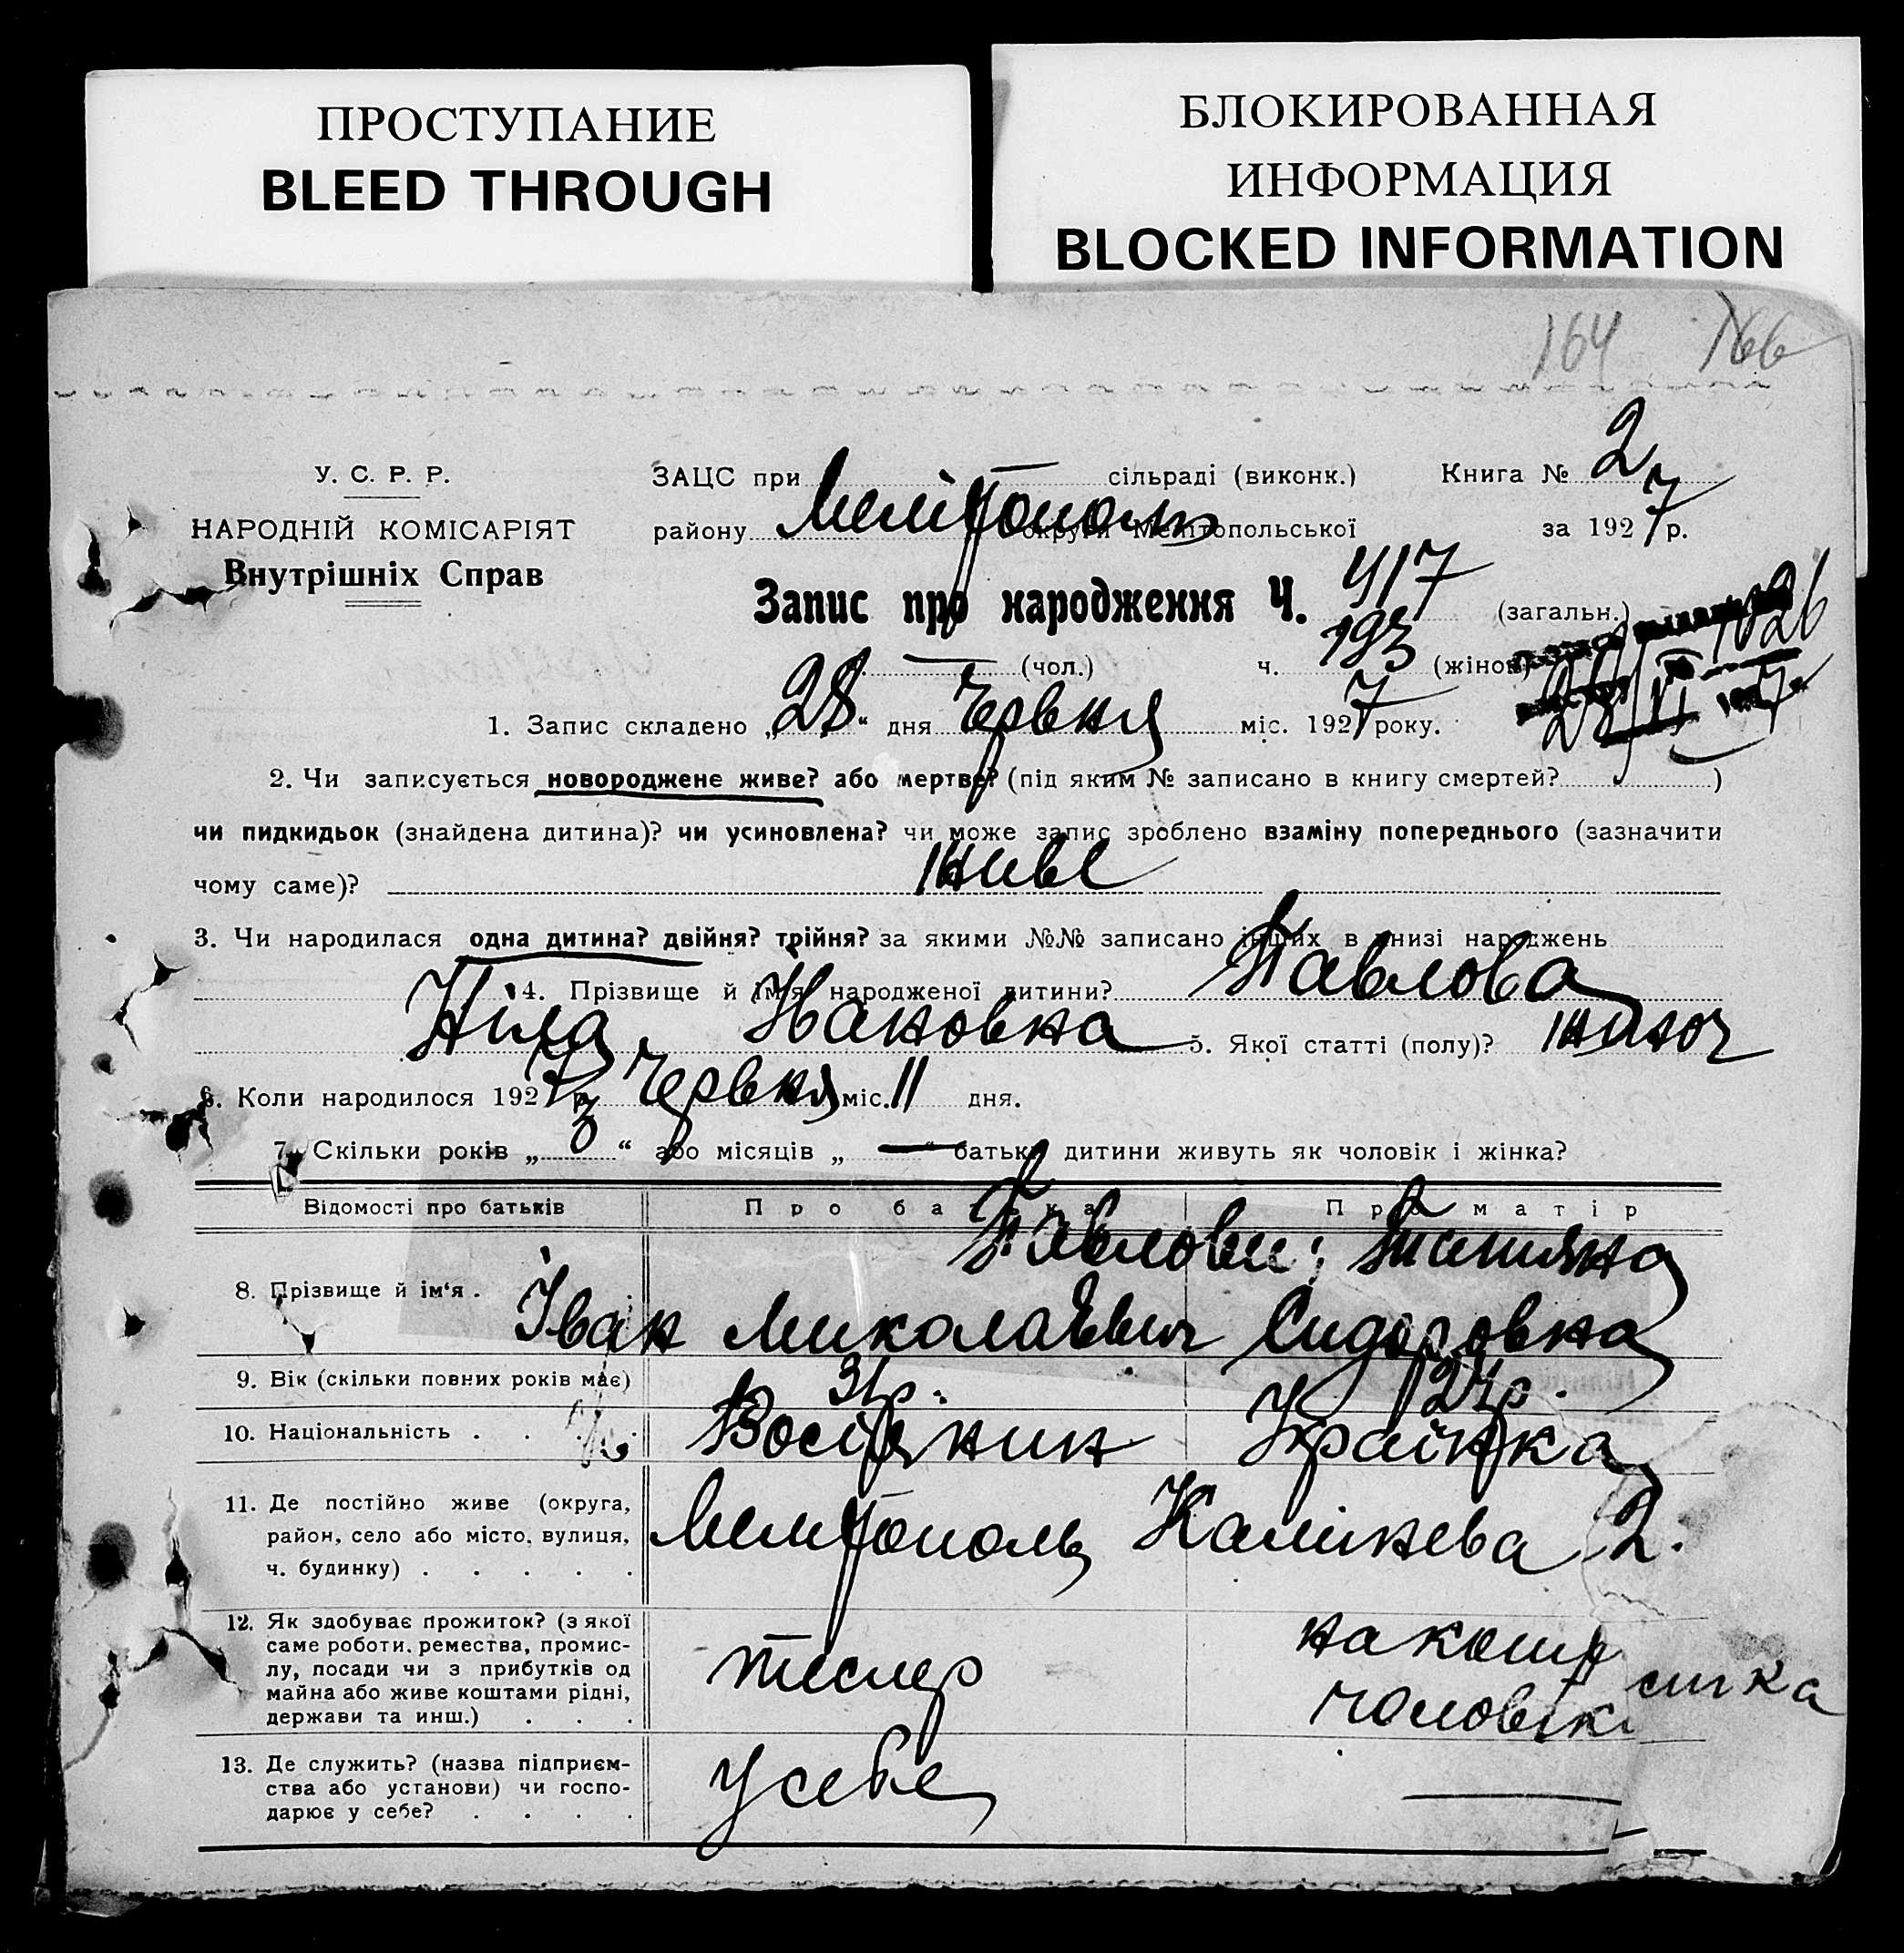 ПРОСТУПАНИЕ
BLEED THROUGH
БЛОКИРОВАННАЯ
ИНФОРМАЦИЯ
BLOCKED INFORMATION
164 166
У. С. Р. Р.
НАРОДНІЙ КОМІСАРІЯТ
Внутрішніх Справ
ЗАЦС при — сільраді (виконк.) Книга № 2
району Мелітополь округи Мелітопольської за 1927 р.
Запис про народження Ч. 417 (загальн.)
— (чол.) ч. 193 (жіноч.)
1. Запис складено „28“ дня Червня міс. 1927 року.
2. Чи записується новороджене живе? або мертве? (під яким № записано в книгу смертей? )
чи пидкидьок (знайдена дитина)? чи усиновлена? чи може запис зроблено взаміну попереднього (зазначити
чому саме)? живе
3. Чи народилася одна дитина? двійня? трійня? за якими №№ записано інших в книзі народжень
4. Прізвище й ім'я народженої дитини? Павлова
Ніла Ивановна 5. Якої статті (полу)? жіноч
6. Коли народилося 1927 р. Червня міс. 11 дня.
7. Скільки років „3“ або місяців „—“ батьки дитини живуть як чоловік і жінка?
Відомості про батьків Про батька Про матір
8. Прізвище й ім'я . Павлови; Татьяна
Іван Миколаєвич Сидоровна
9. Вік (скільки повних років має) 31р. 24р.
10. Національність . . . Росіянин Украінка
11. Де постійно живе (округа,
район, село або місто, вулиця,
ч. будинку) . . . . .
Мелітополь Калінєва 2.
12. Як здобуває прожиток? (з якої
саме роботи, ремества, промис-
лу, посади чи з прибутків од
майна або живе коштами рідні,
держави та инш.) . . .
тесляр
на кошт
чоловіка
13. Де служить? (назва підприєм-
ства або установи) чи госпо-
дарює у себе? . . . .
у себе —